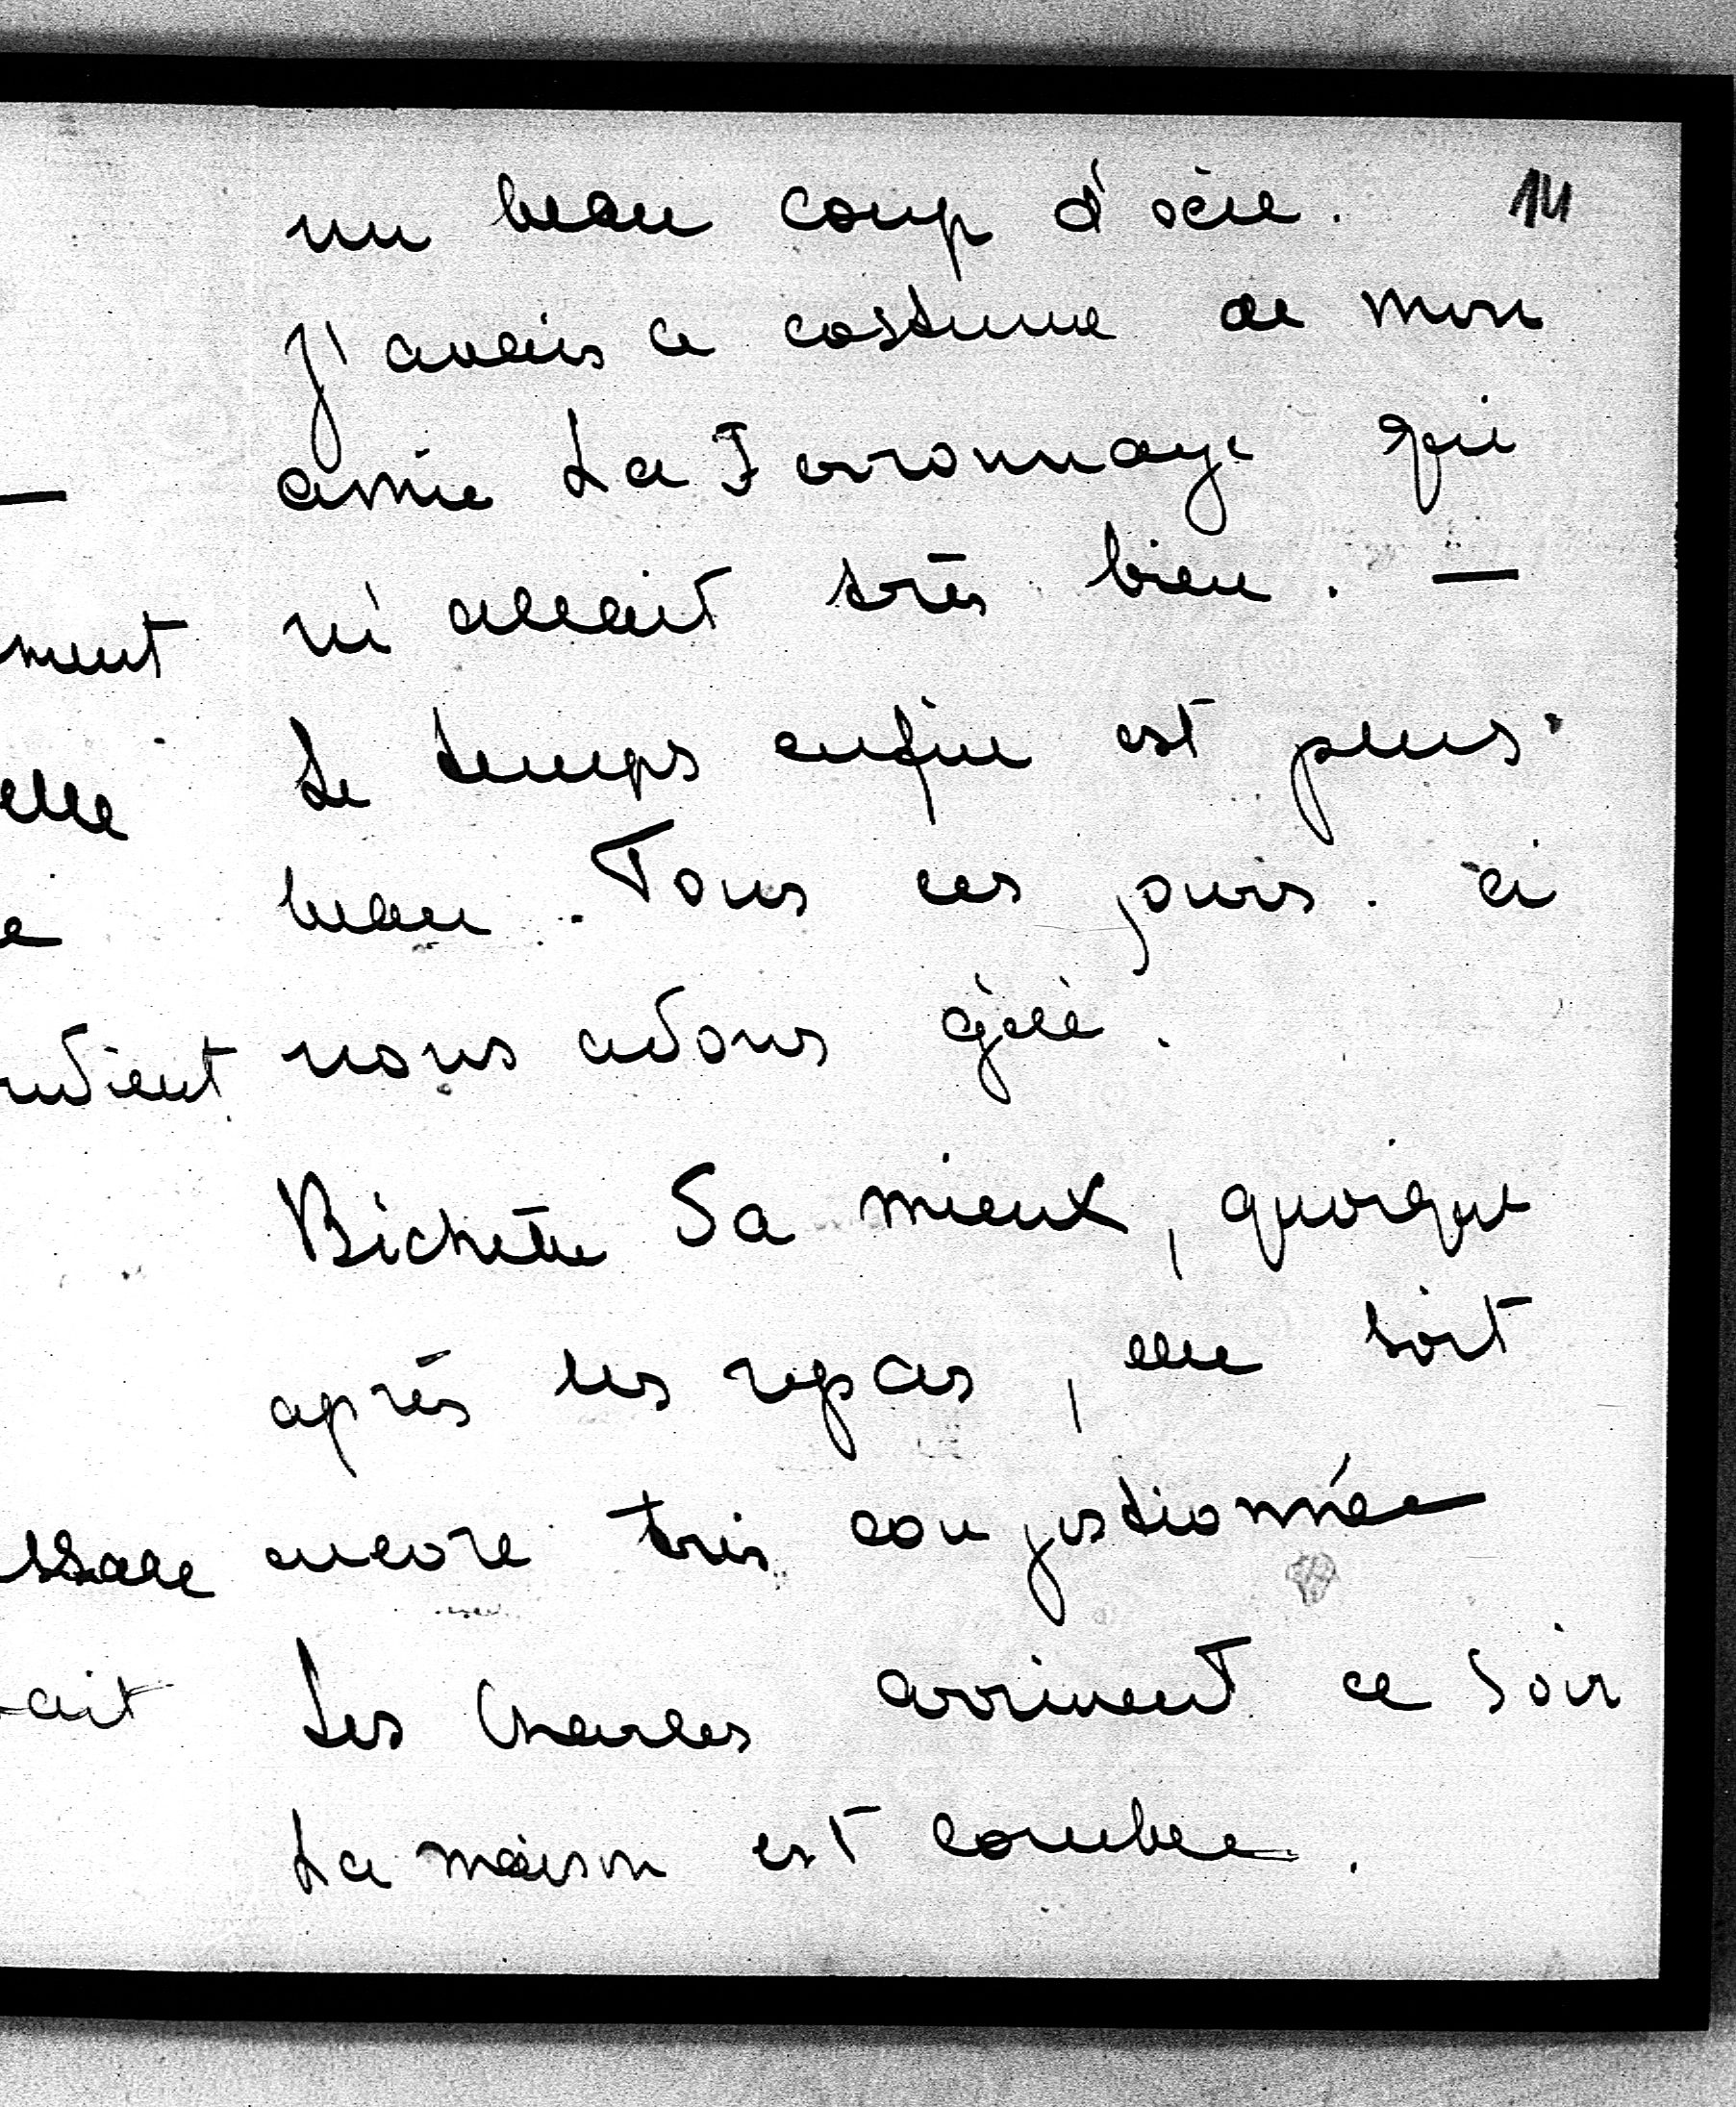 14
un beau coup d'œil.
J'avais le costume de mon
amie La Ferronnaye qui
m'allait très bien. —
Le temps enfin est plus
beau. Tous ces jours-ci
nous avons gelé.
Bichette va mieux, quoique
après les repas, elle soit
encore très congestionnée
Les Charles arrivent ce soir
La maison est comble.
—
ment
elle
e
ndient
ssale
ait